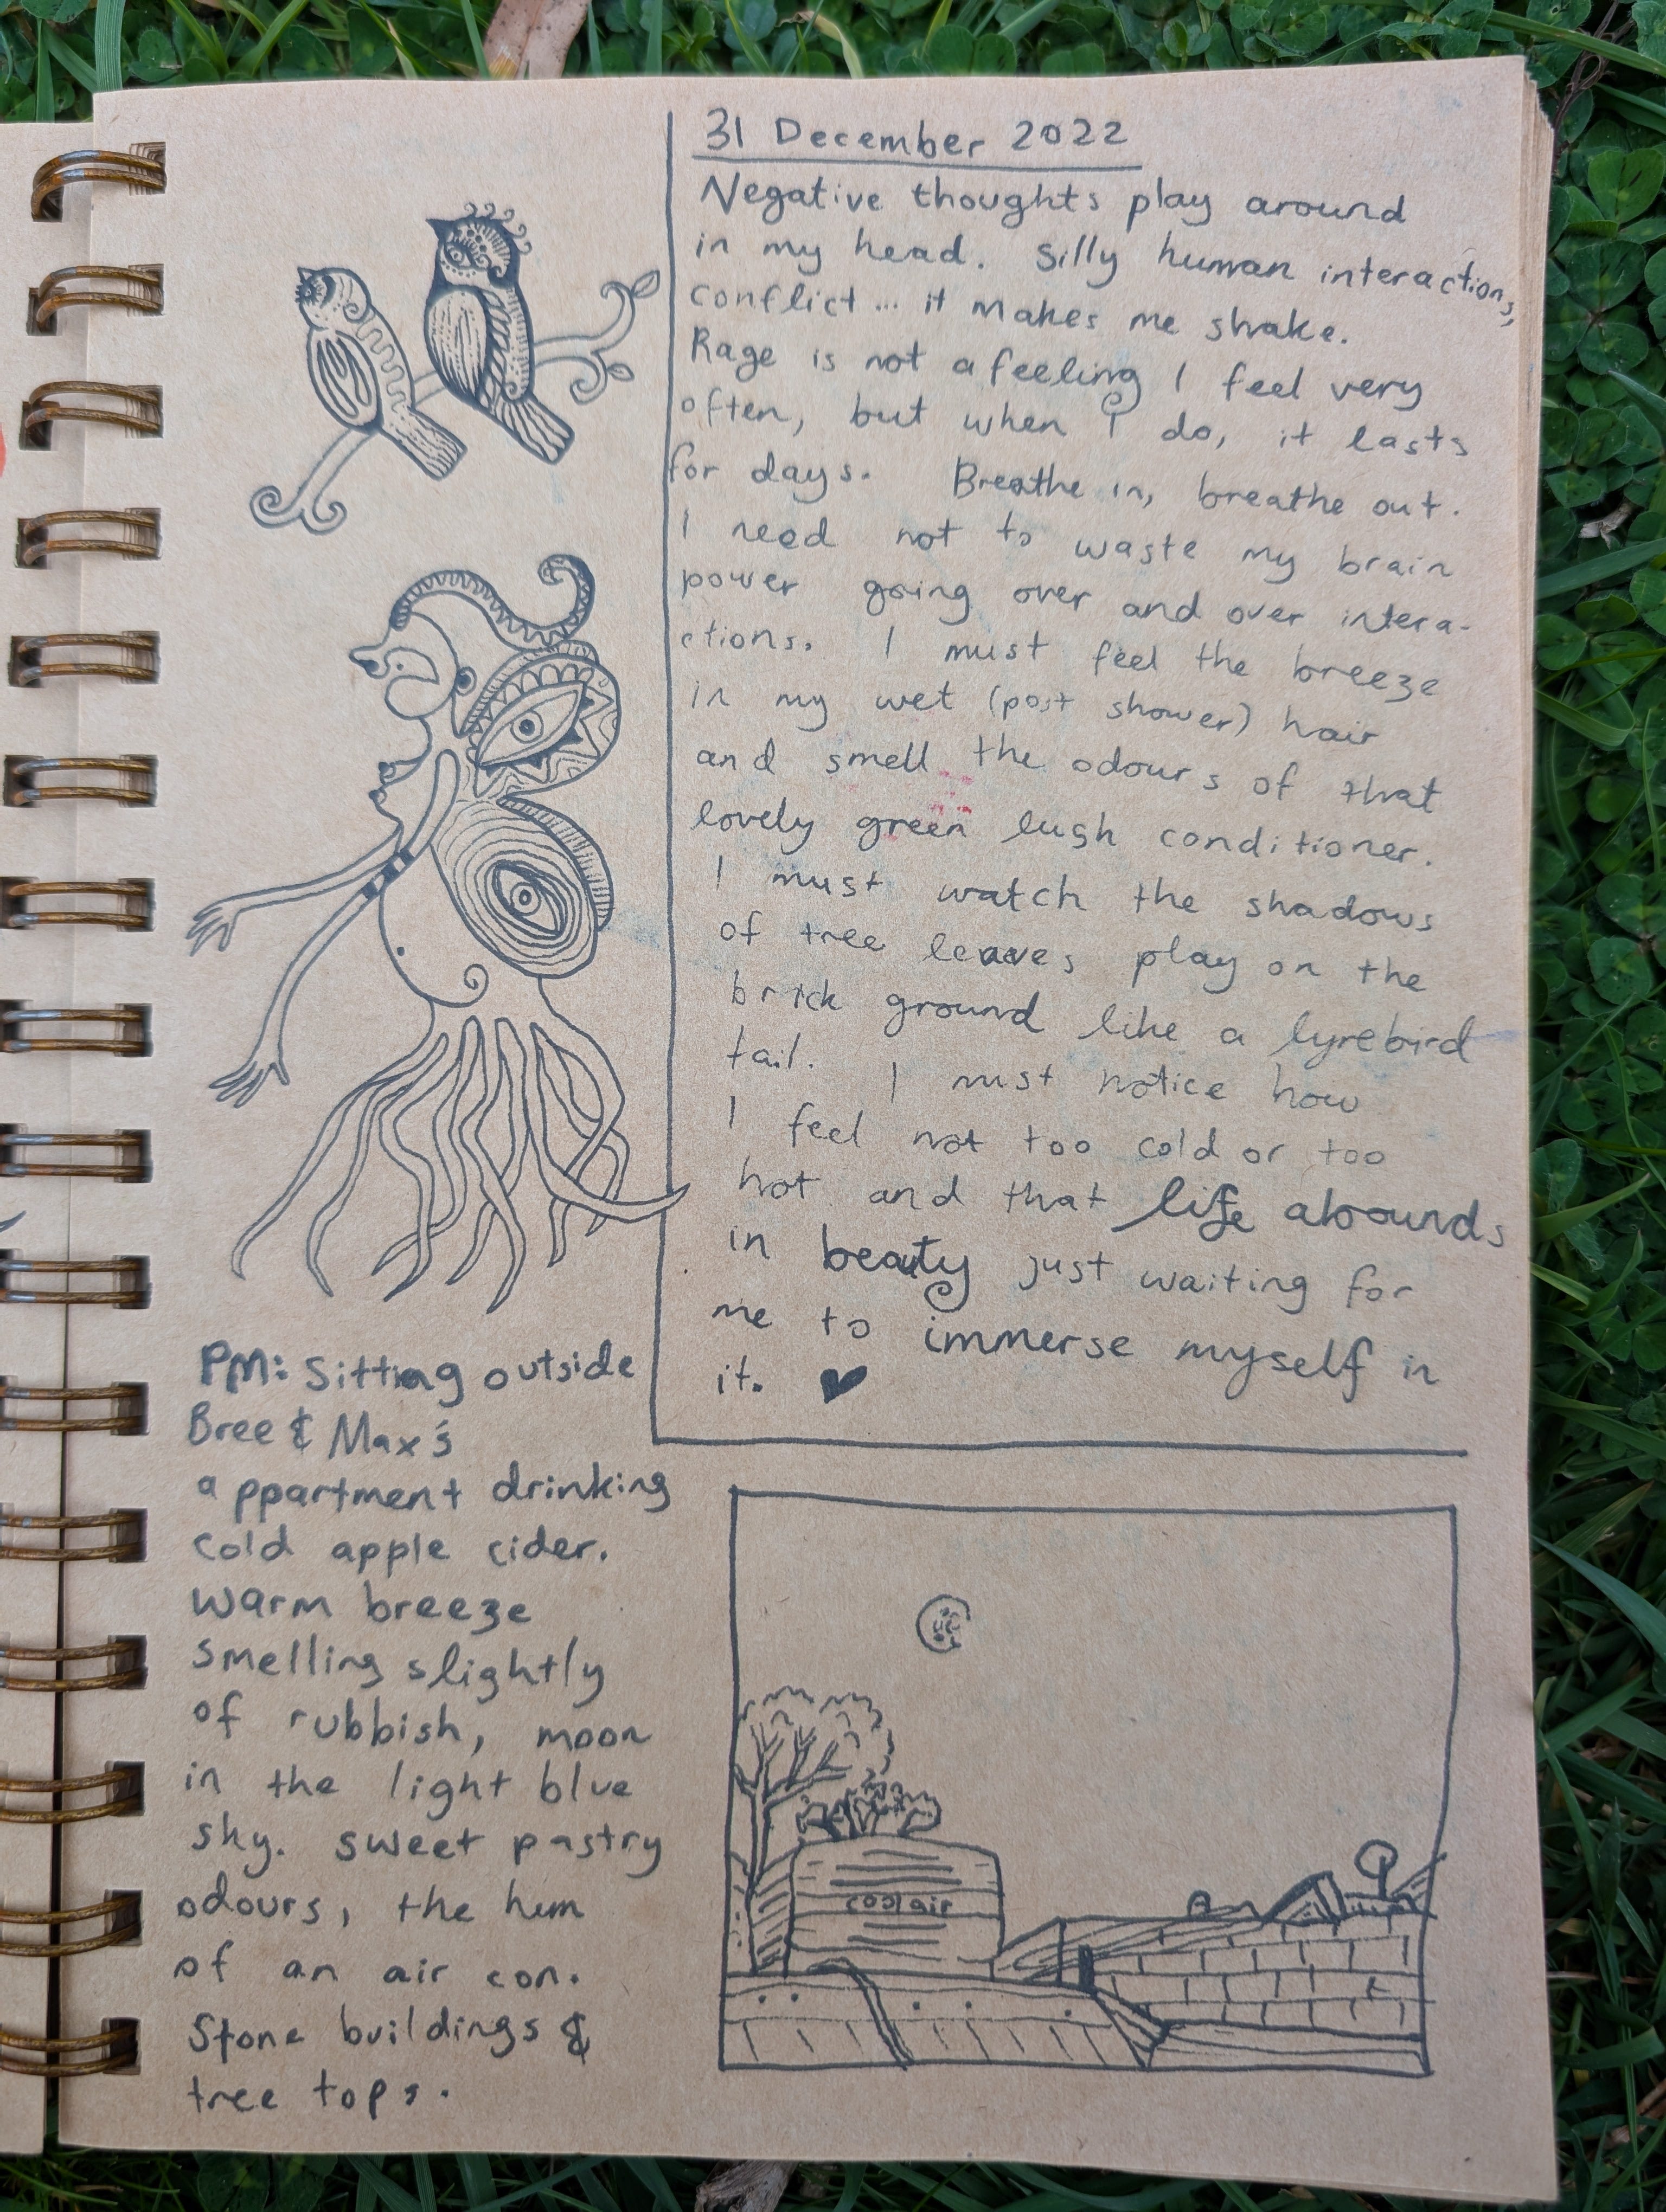 31 December 2022
Negative thoughts play around
in my head. Silly human interactions,
conflict... it makes me shake.
Rage is not a feeling I feel very
often, but when I do, it lasts
for days. Breathe in, breathe out.
I need not to waste my brain
power going over and over intera-
ctions. I must feel the breeze
in my wet (post shower) hair
and smell the odours of that
lovely green lush conditioner.
I must watch the shadows
of tree leaves play on the
brick ground like a lyrebird
tail. I must notice how
I feel not too cold or too
hot and that life abounds
in beauty just waiting for
me to immerse myself in
it. ♥
PM: Sitting outside
Bree & Max's
appartment drinking
cold apple cider.
warm breeze
smelling slightly
of rubbish, moon
in the light blue
sky. sweet pastry
odours, the hum
of an air con.
Stone buildings &
tree tops.
cool air